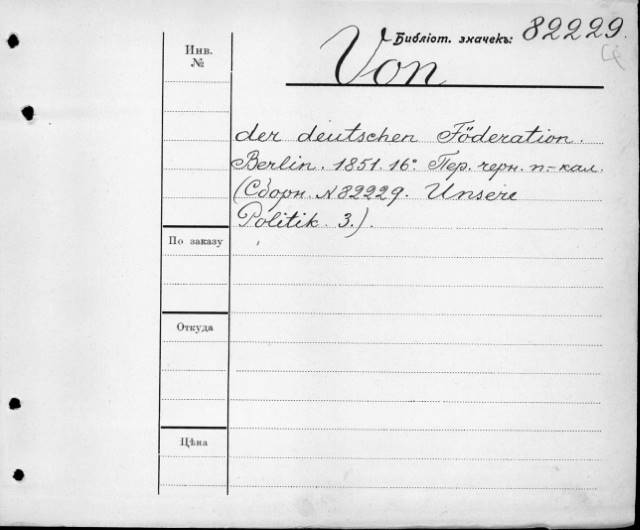 Инв.
№
Библіот. значекъ: 82229.
Von
der deutschen Föderation.
Berlin. 1851. 16°. Пер. черн. п.-кал.
(Сборн. № 82229. Unsere
Politik. 3.).
По заказу
Откуда
Цѣна